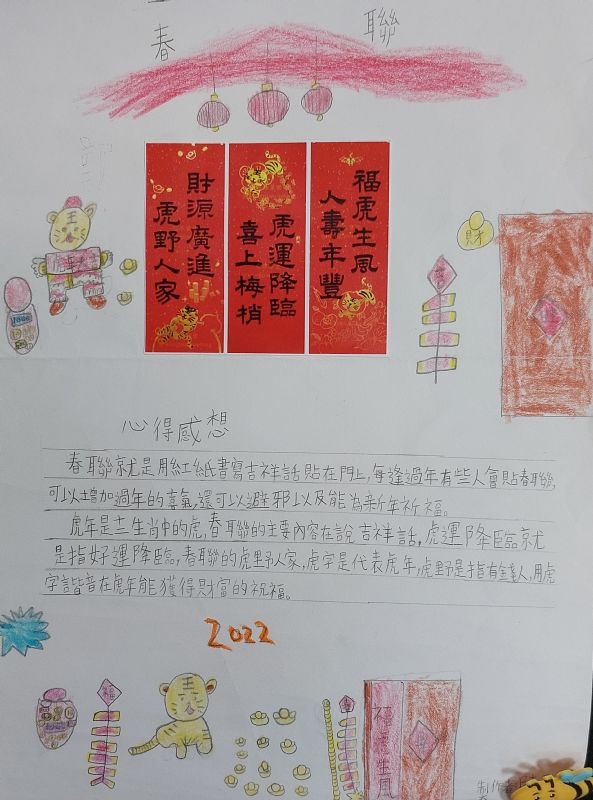 春聯
財源廣進
虎野人家
虎運降臨
喜上梅梢
福虎生風
人壽年豐
財
心得感想
春聯就是用紅紙書寫吉祥話貼在門上,每逢過年有些人會貼春聯,
可以增加過年的喜氣,還可以避邪以及能為新年祈福。
虎年是十二生肖中的虎,春聯的主要內容在說吉祥話,虎運降臨就
是指好運降臨,春聯的虎野人家,虎字是代表虎年,虎野是指有錢人,用虎
字諧音在虎年能獲得財富的祝福。
2022
福
王
福虎生風